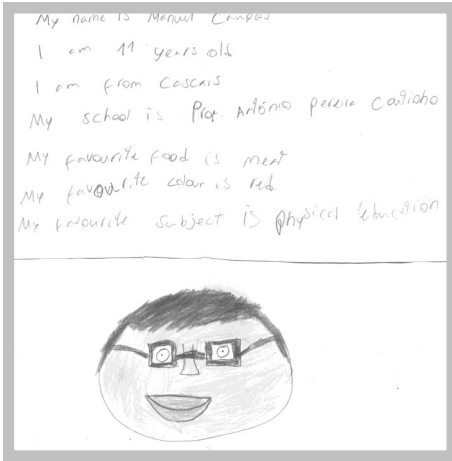 My name is Manuel Campos
I am 11 years old
I am from Cascais
My school is Prof. António pereira Coutinho
My favourite food is meat
My favourite colour is red
My favourite subject is physical education